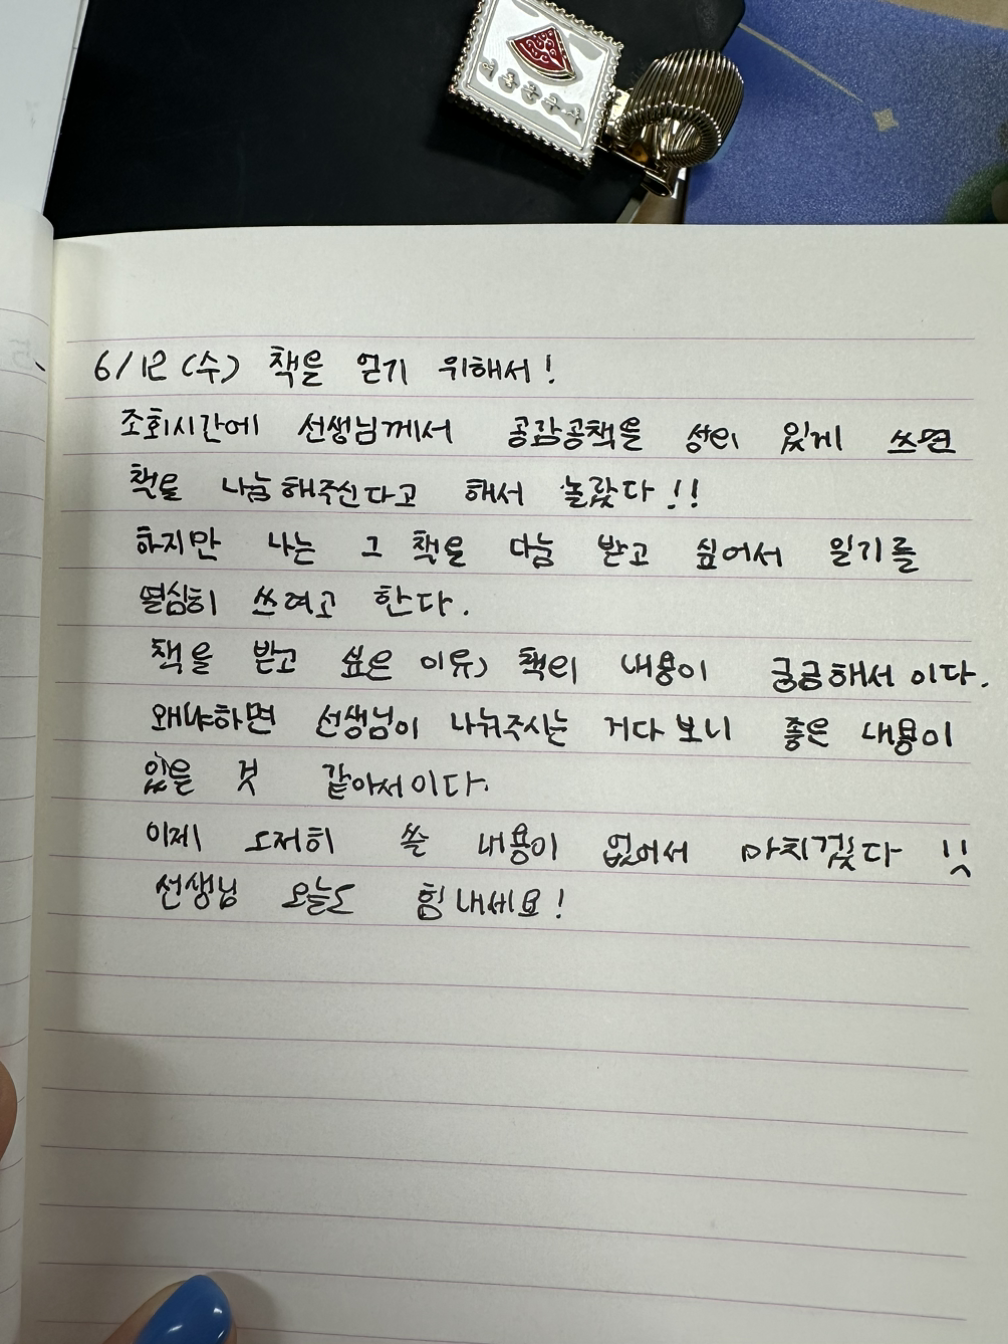 6/12 (수) 책을 얻기 위해서!
조회시간에 선생님께서 공감공책을 성의 있게 쓰면
책을 나눔해주신다고 해서 놀랐다!!
하지만 나는 그 책을 나눔 받고 싶어서 일기를
열심히 쓰려고 한다.
책을 받고 싶은 이유) 책의 내용이 궁금해서이다.
왜냐하면 선생님이 나눠주시는 거다 보니 좋은 내용이
있을 것 같아서이다.
이제 도저히 쓸 내용이 없어서 마치겠다
선생님 오늘도 힘내세요!